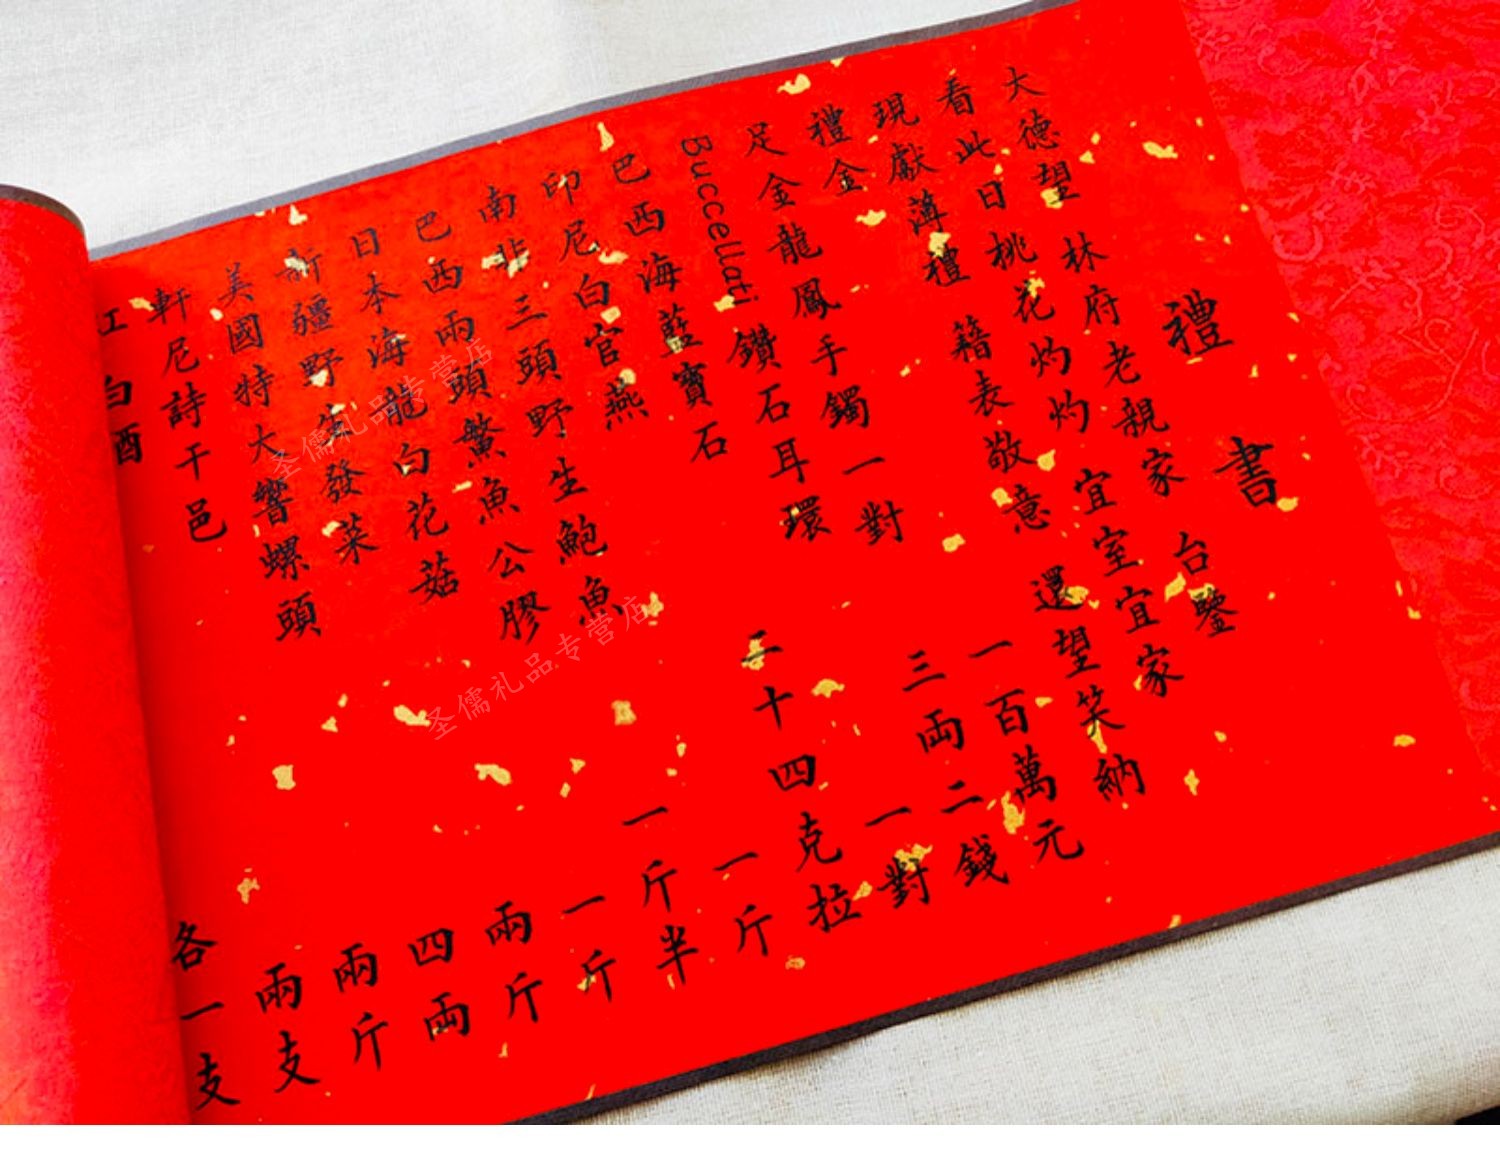 禮書
大德望 林府老親家 台鑒
看此日桃花灼灼 宜室宜家
現獻薄禮 籍表敬意 還望笑納
禮金 一百萬元
足金龍鳳手鐲一對 三両二錢
Buccellati 鑽石耳環 一對
巴西海藍寶石 二十四克拉
印尼白官燕 一斤
南非三頭野生鮑魚 一斤半
巴西両頭鰵魚公膠 一斤
日本海龍白花菇 両斤
新疆野生發菜 四両
美國特大響螺頭 両斤
軒尼詩干邑 両支
紅白酒 各一支
圣儒礼品专营店
圣儒礼品专营店